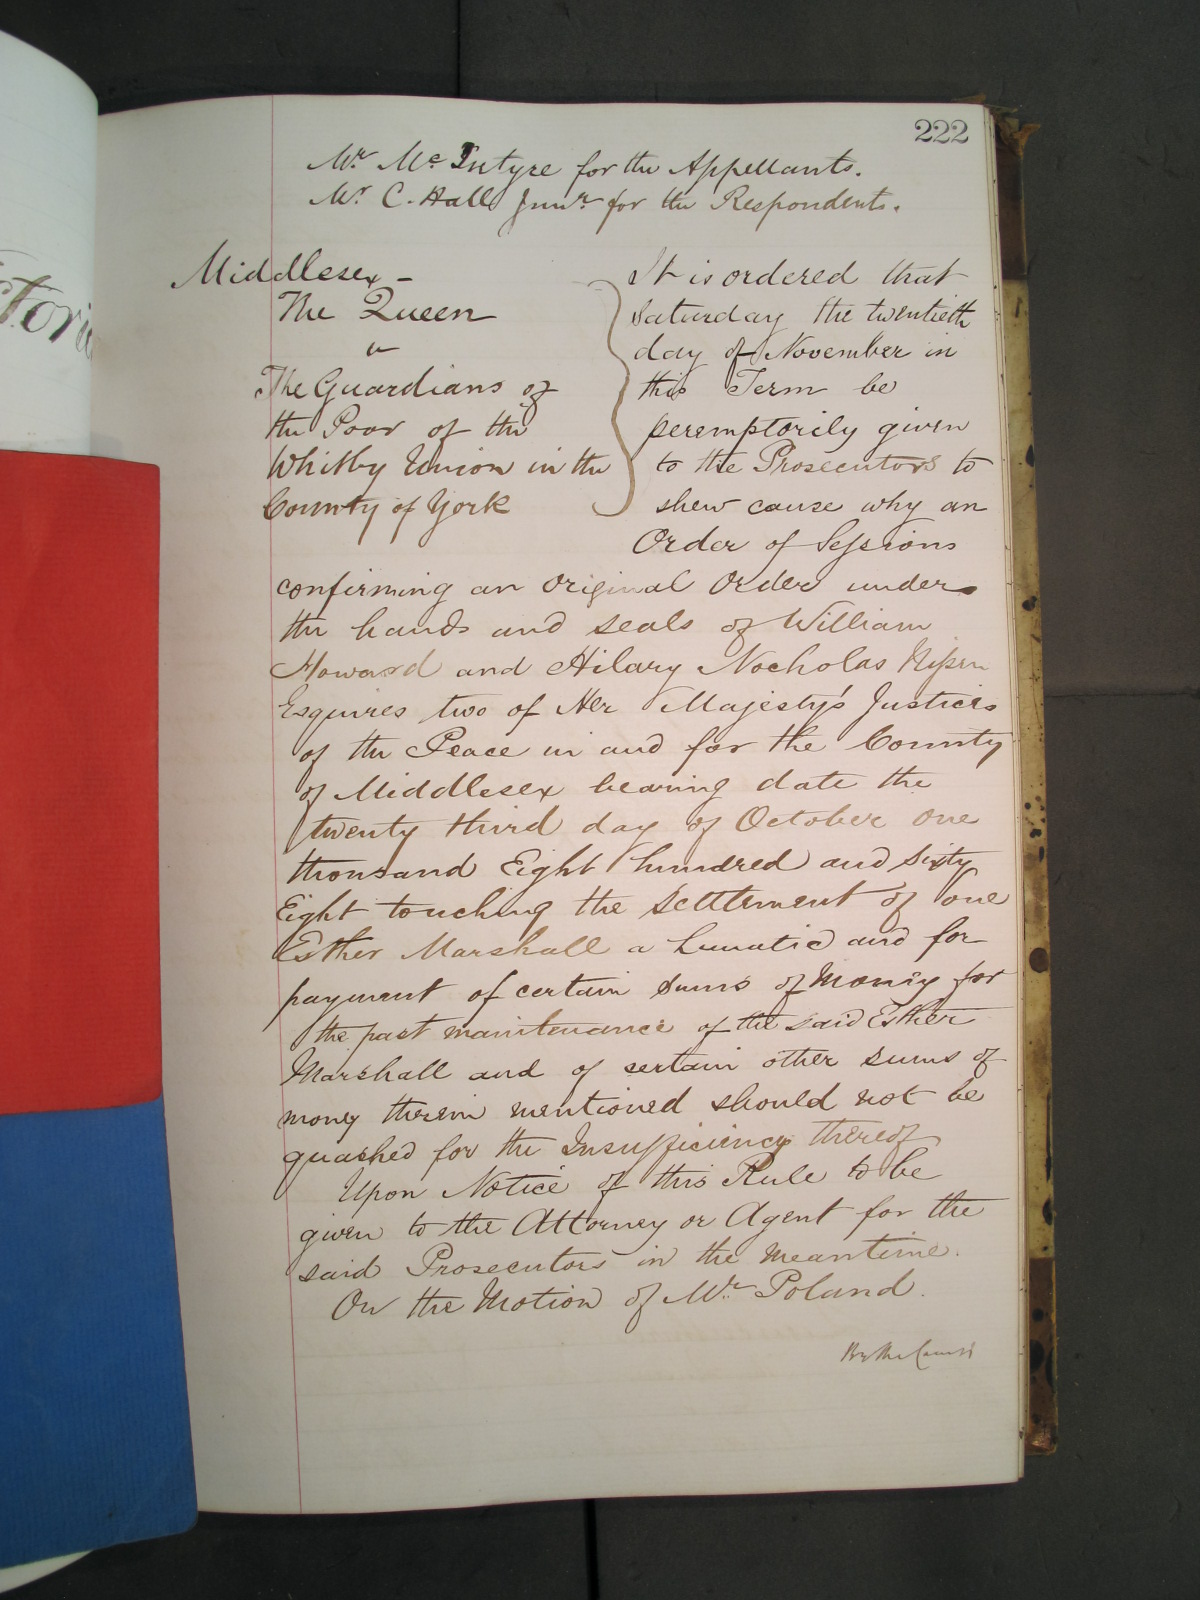 222
Mr. McIntyre for the Appellants.
Mr. C. Hall Junr. for the Respondents.
Middlesex -
The Queen
v
The Guardians of
the Poor of the
Whitby Union in the
County of York
It is ordered that
Saturday the twentieth
day of November in
this Term be
peremptorily given
to the Prosecutors to
shew cause why an
Order of Sessions
confirming an original Order under
the hands and seals of William
Howard and Hilary Nocholas Nissen
Esquires two of Her Majesty's Justices
of the Peace in and for the County
of Middlesex bearing date the
twenty third day of October one
thousand Eight hundred and sixty
Eight touching the settlement of one
Esther Marshall a Lunatic and for
payment of certain sums of Money for
the past maintenance of the said Esther
Marshall and of certain other sums of
money therein mentioned should not be
quashed for the Insufficiency thereof
Upon Notice of this Rule to be
given to the Attorney or Agent for the
said Prosecutors in the meantime.
On the Motion of Mr. Poland.
By the Court